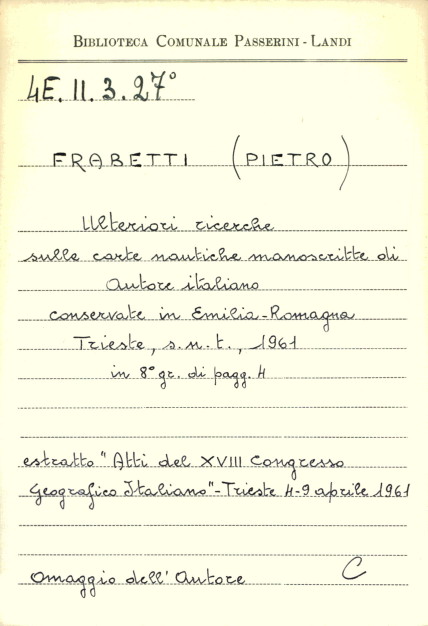 BIBLIOTECA COMUNALE PASSERINI-LANDI
4E. II. 3. 27°
FRABETTI (PIETRO)
Ulteriori ricerche
sulle carte nautiche manoscritte di
Autore italiano
conservate in Emilia-Romagna
Trieste, s.n.t., 1961
in 8° gr. di pagg. 4
estratto "Atti del XVIII Congresso
Geografico Italiano"-Trieste 4-9 aprile 1961
Omaggio dell'Autore C